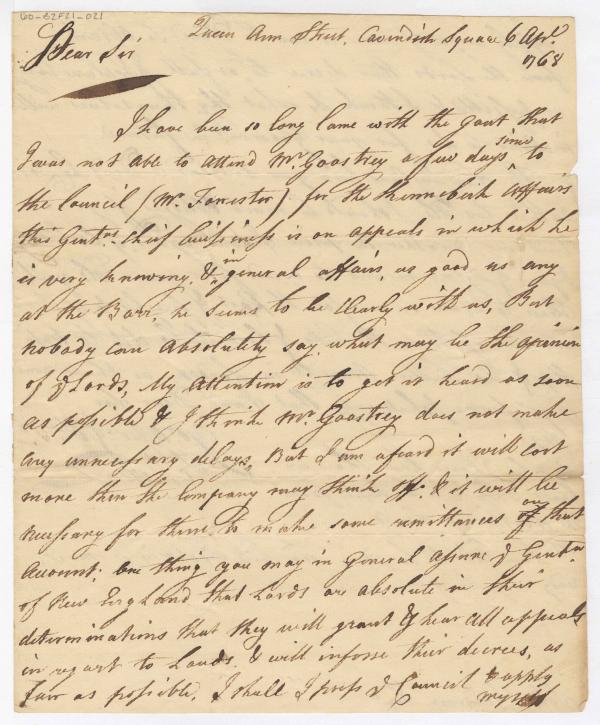 60-82F21-021
Queen Ann Street, Cavendish Square 6 Aprl.
1768
Dear Sir
I have been so long lame with the gout that
I was not able to attend Mr. Goostrey a few days since to
the Council (Mr. Forrester) for the Kennebeck Affairs
this Gentns. chief buissiness is on appeals in which he
is very knowing, & in general affairs, as good us any
at the Barr, he seems to be clearly with us, But
nobody can absolutely say what may be the opinion
of ye Lords, My Attention is to get it heard as soon
as possible & I think Mr. Goostrey does not make
any unnecessary delays, But I am afeard it will cost
more then the Company may think off. & it will be
necessary for them to make some remittances of on that
Account; One thing you may in General Assure ye Gentn.
of New England that Lords are absolute in their
determinations that they will grant & hear all appeals
in regart to Lands, & will inforse their decrees, as
farr as possible. I shall I press ye Council to apply
myself